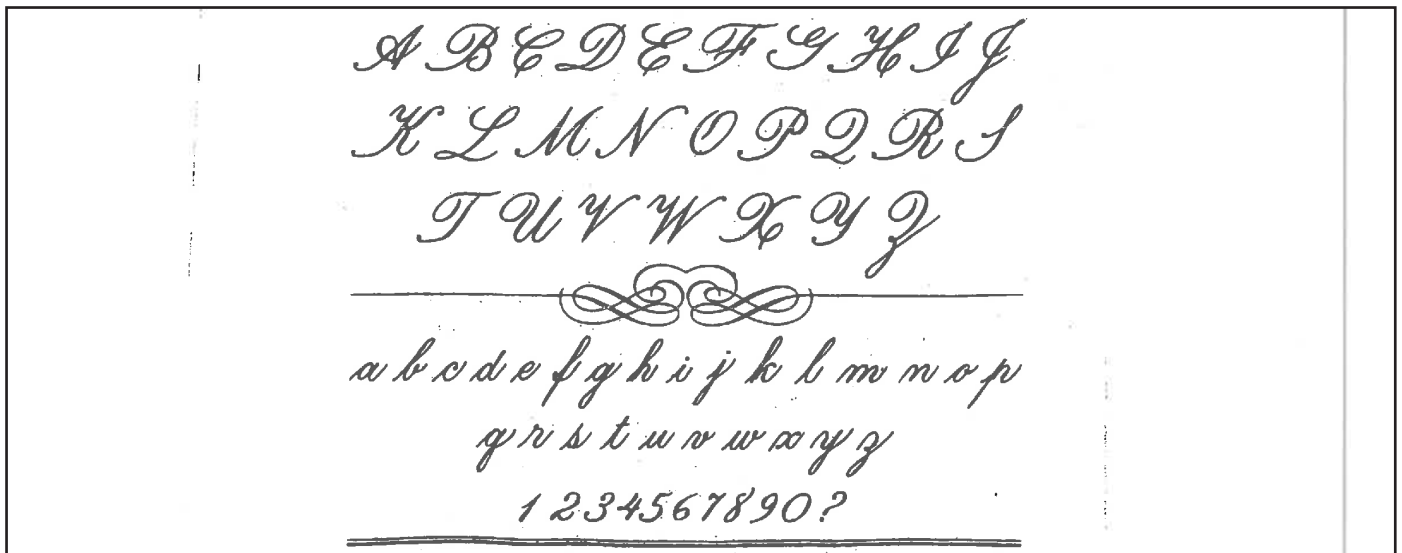 A B C D E F G H I J
K L M N O P Q R S
T U V W X Y Z
a b c d e f g h i j k l m n o p
q r s t u v w x y z
1 2 3 4 5 6 7 8 9 0 ?